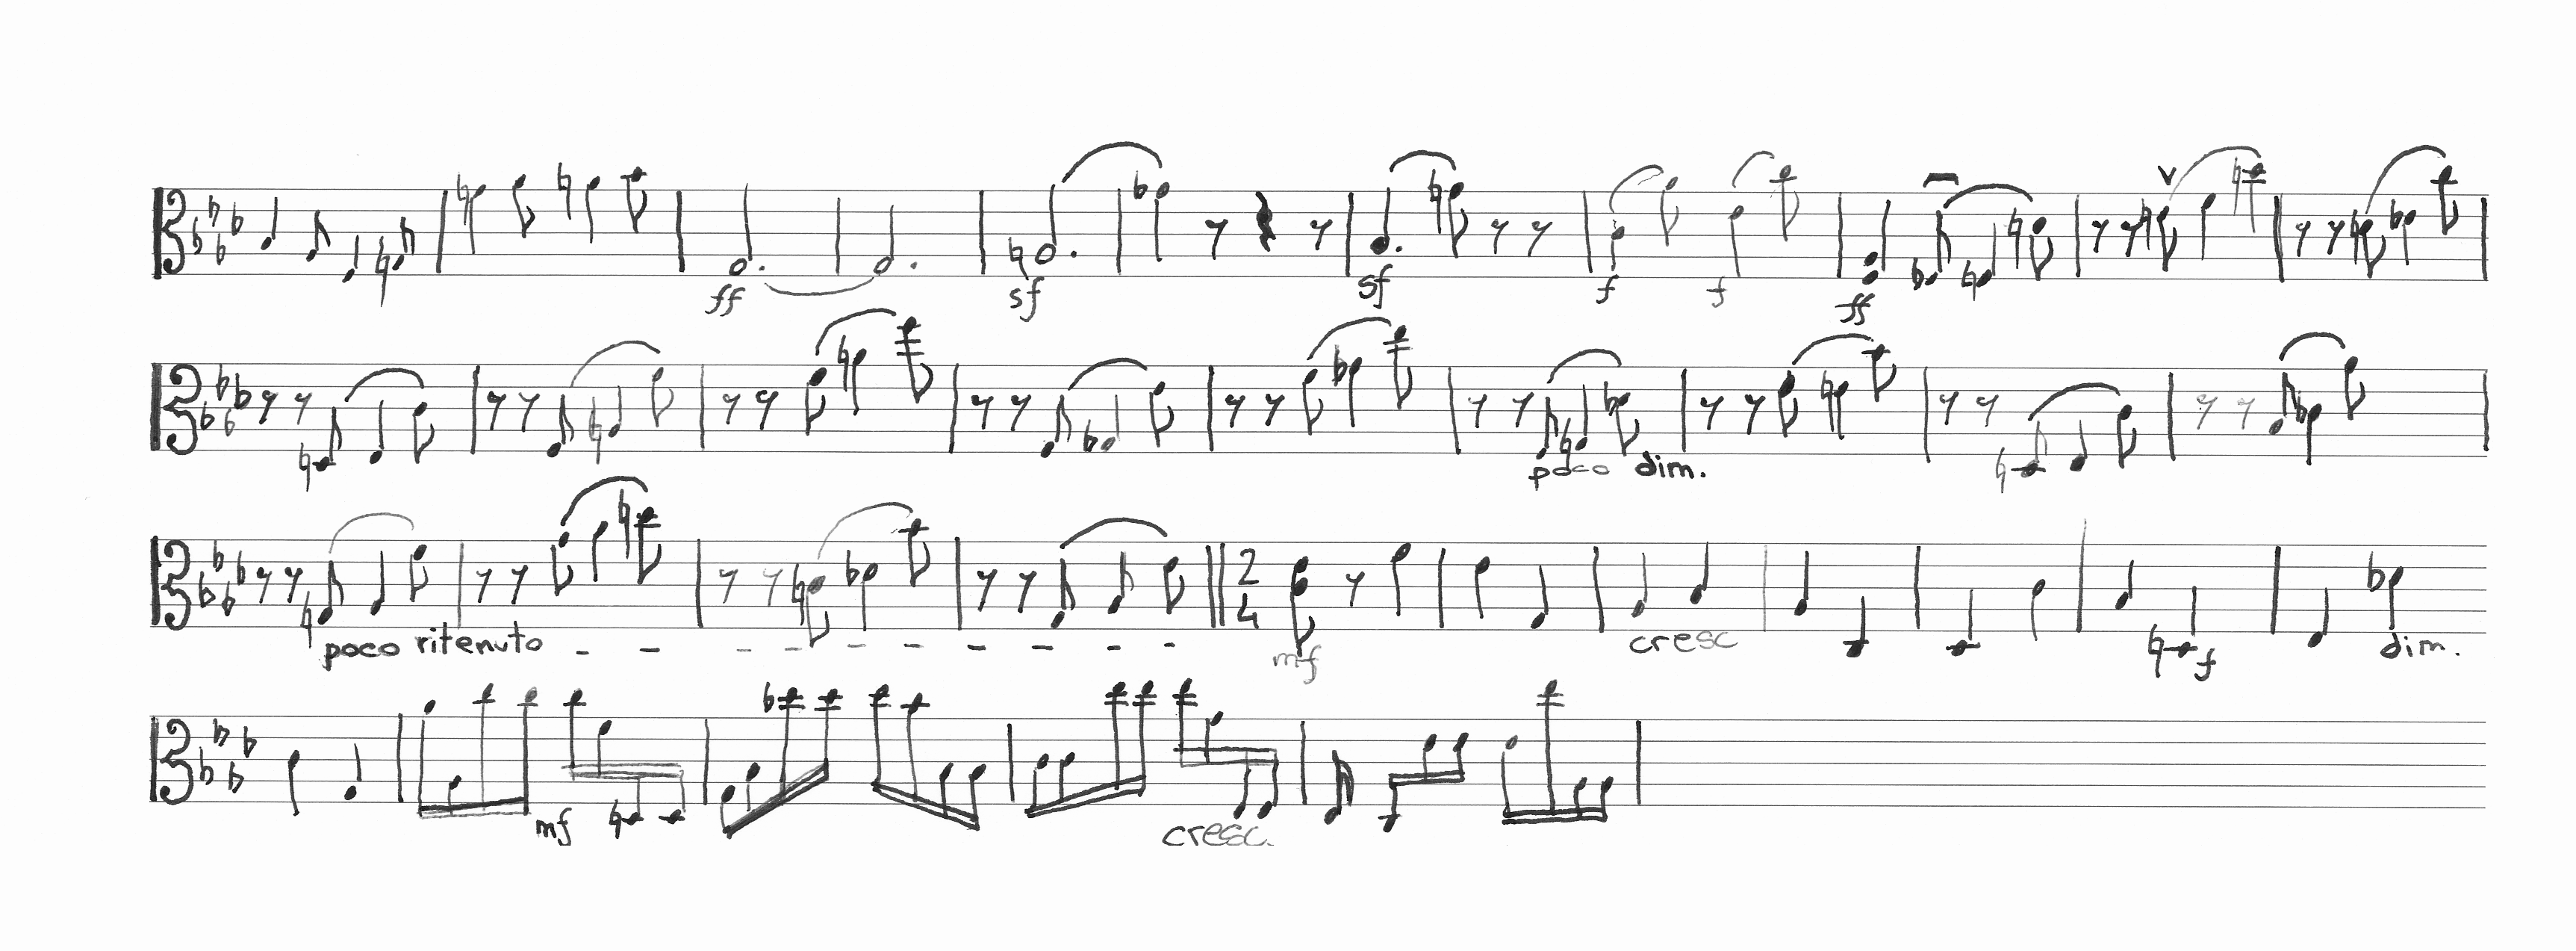 ff sf sf f f ff
poco dim.
poco ritenuto - - - - - - - - - - 2 4 mf cresc f dim.
mf cresc.